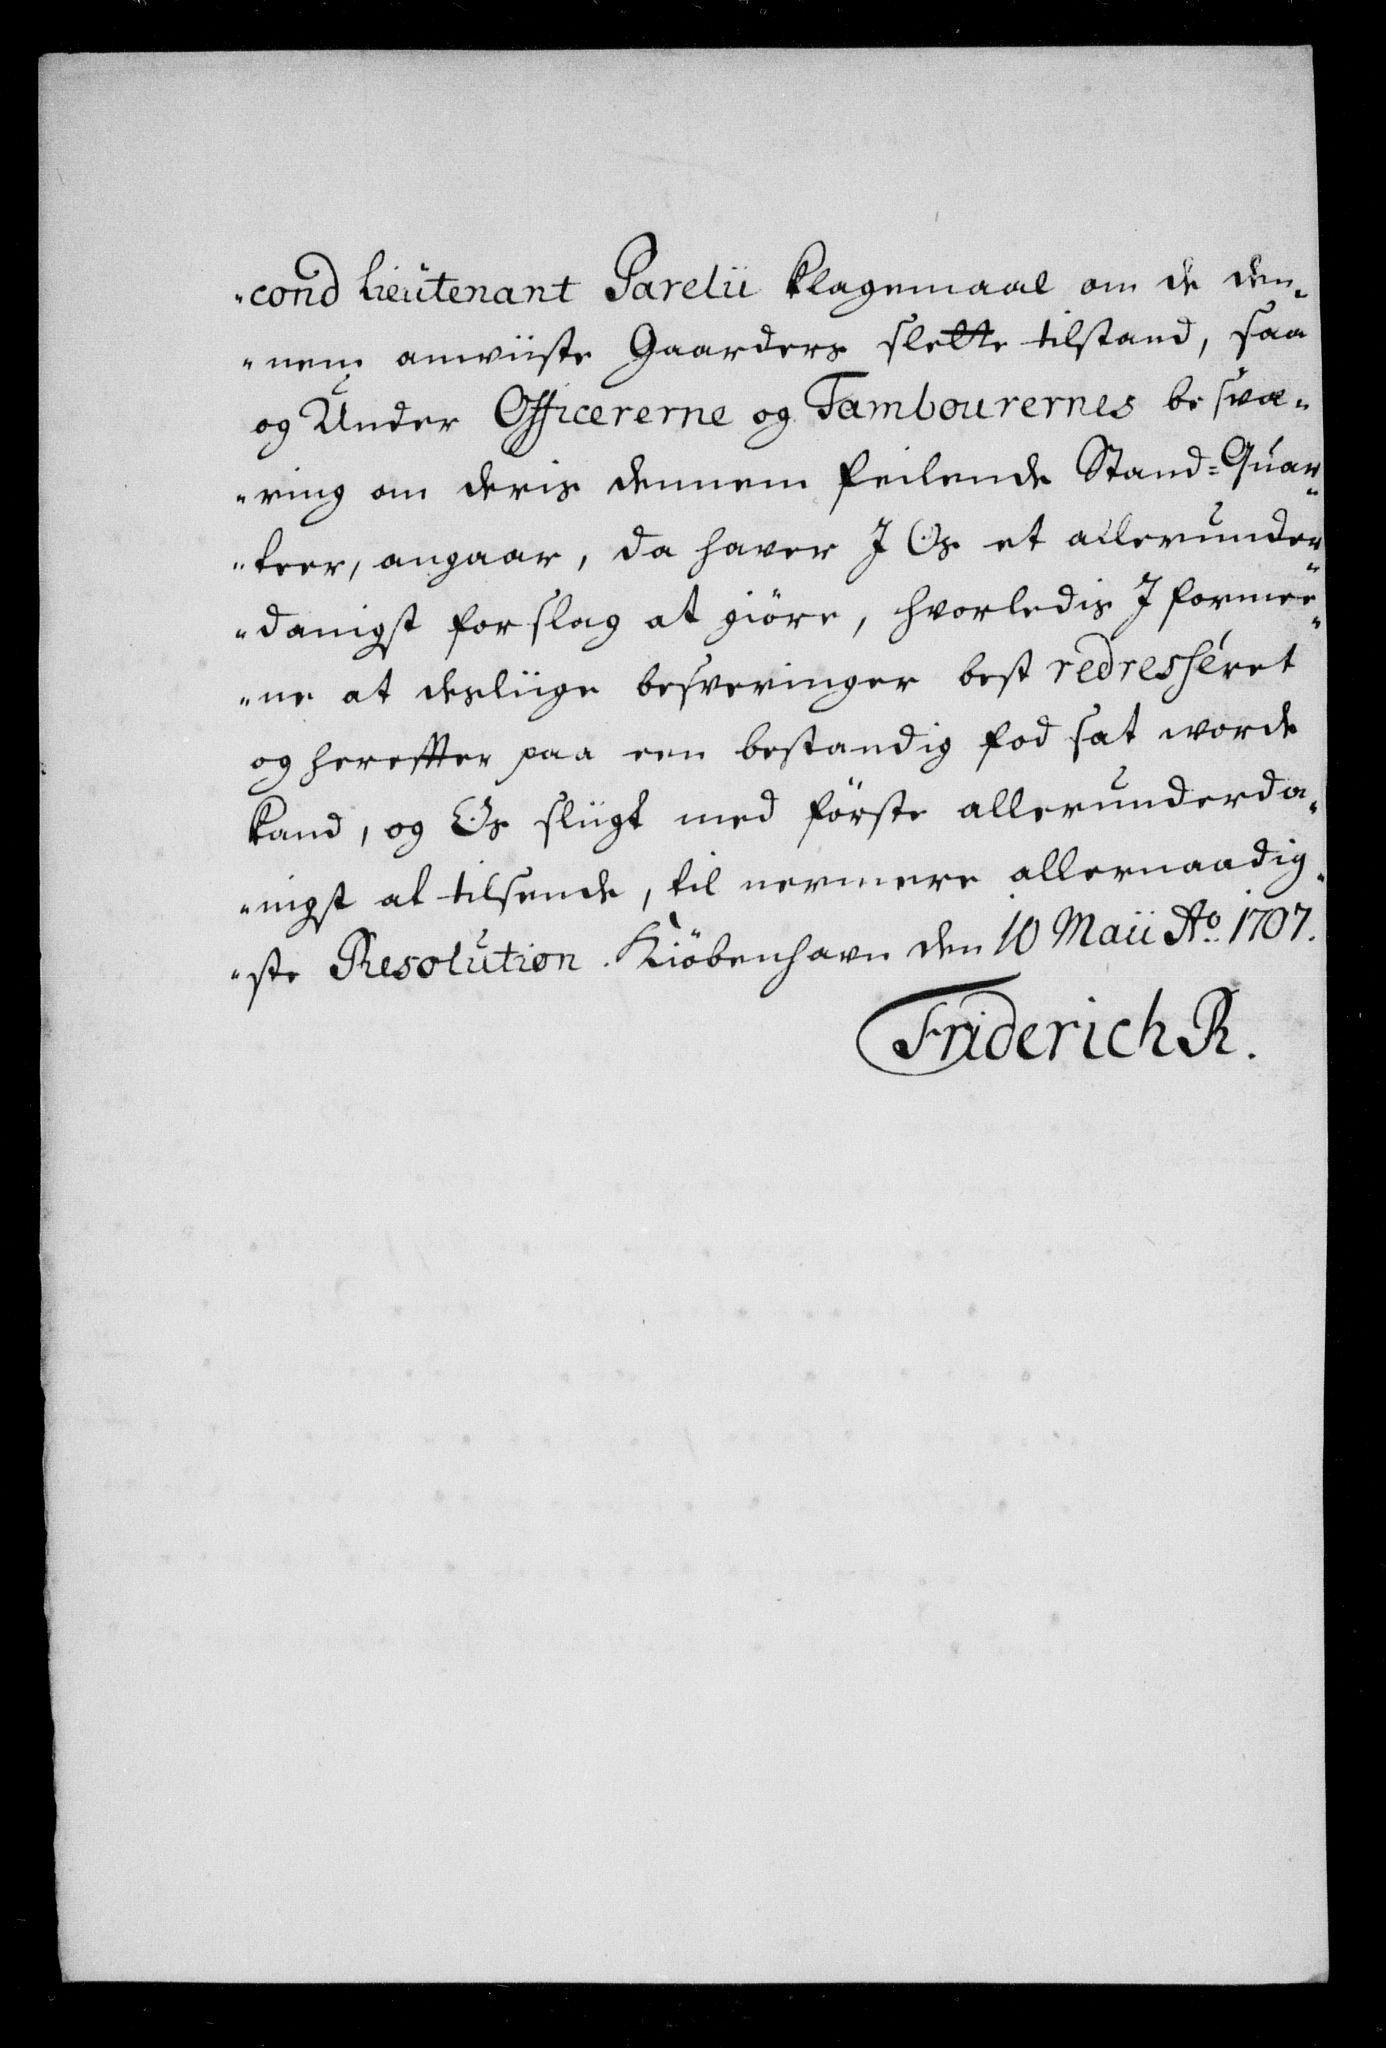 "cond Lieutenant Parelii klagemaal om de den„
"nem anwiiste Gaarders slette tilstand, saa
og Under Officererne og Tambourernes besvæ„
"ring om deris dennem feilende Stand=Quar„
"teer, angaar, da haver J Os et allerunder„
"danigst forslag at giöre, hvorledis J formee„
"ne at desliige besveringer best redresséret
og hereffter paa een bestandig fod sat worde
kand, og Os sliigt med förste allerunderda„
"nigst at tilsende, til nermere allernaadig„
"ste Resolution. Kiöbenhavn den 10 Maii Ao. 1707.
Friderich R.